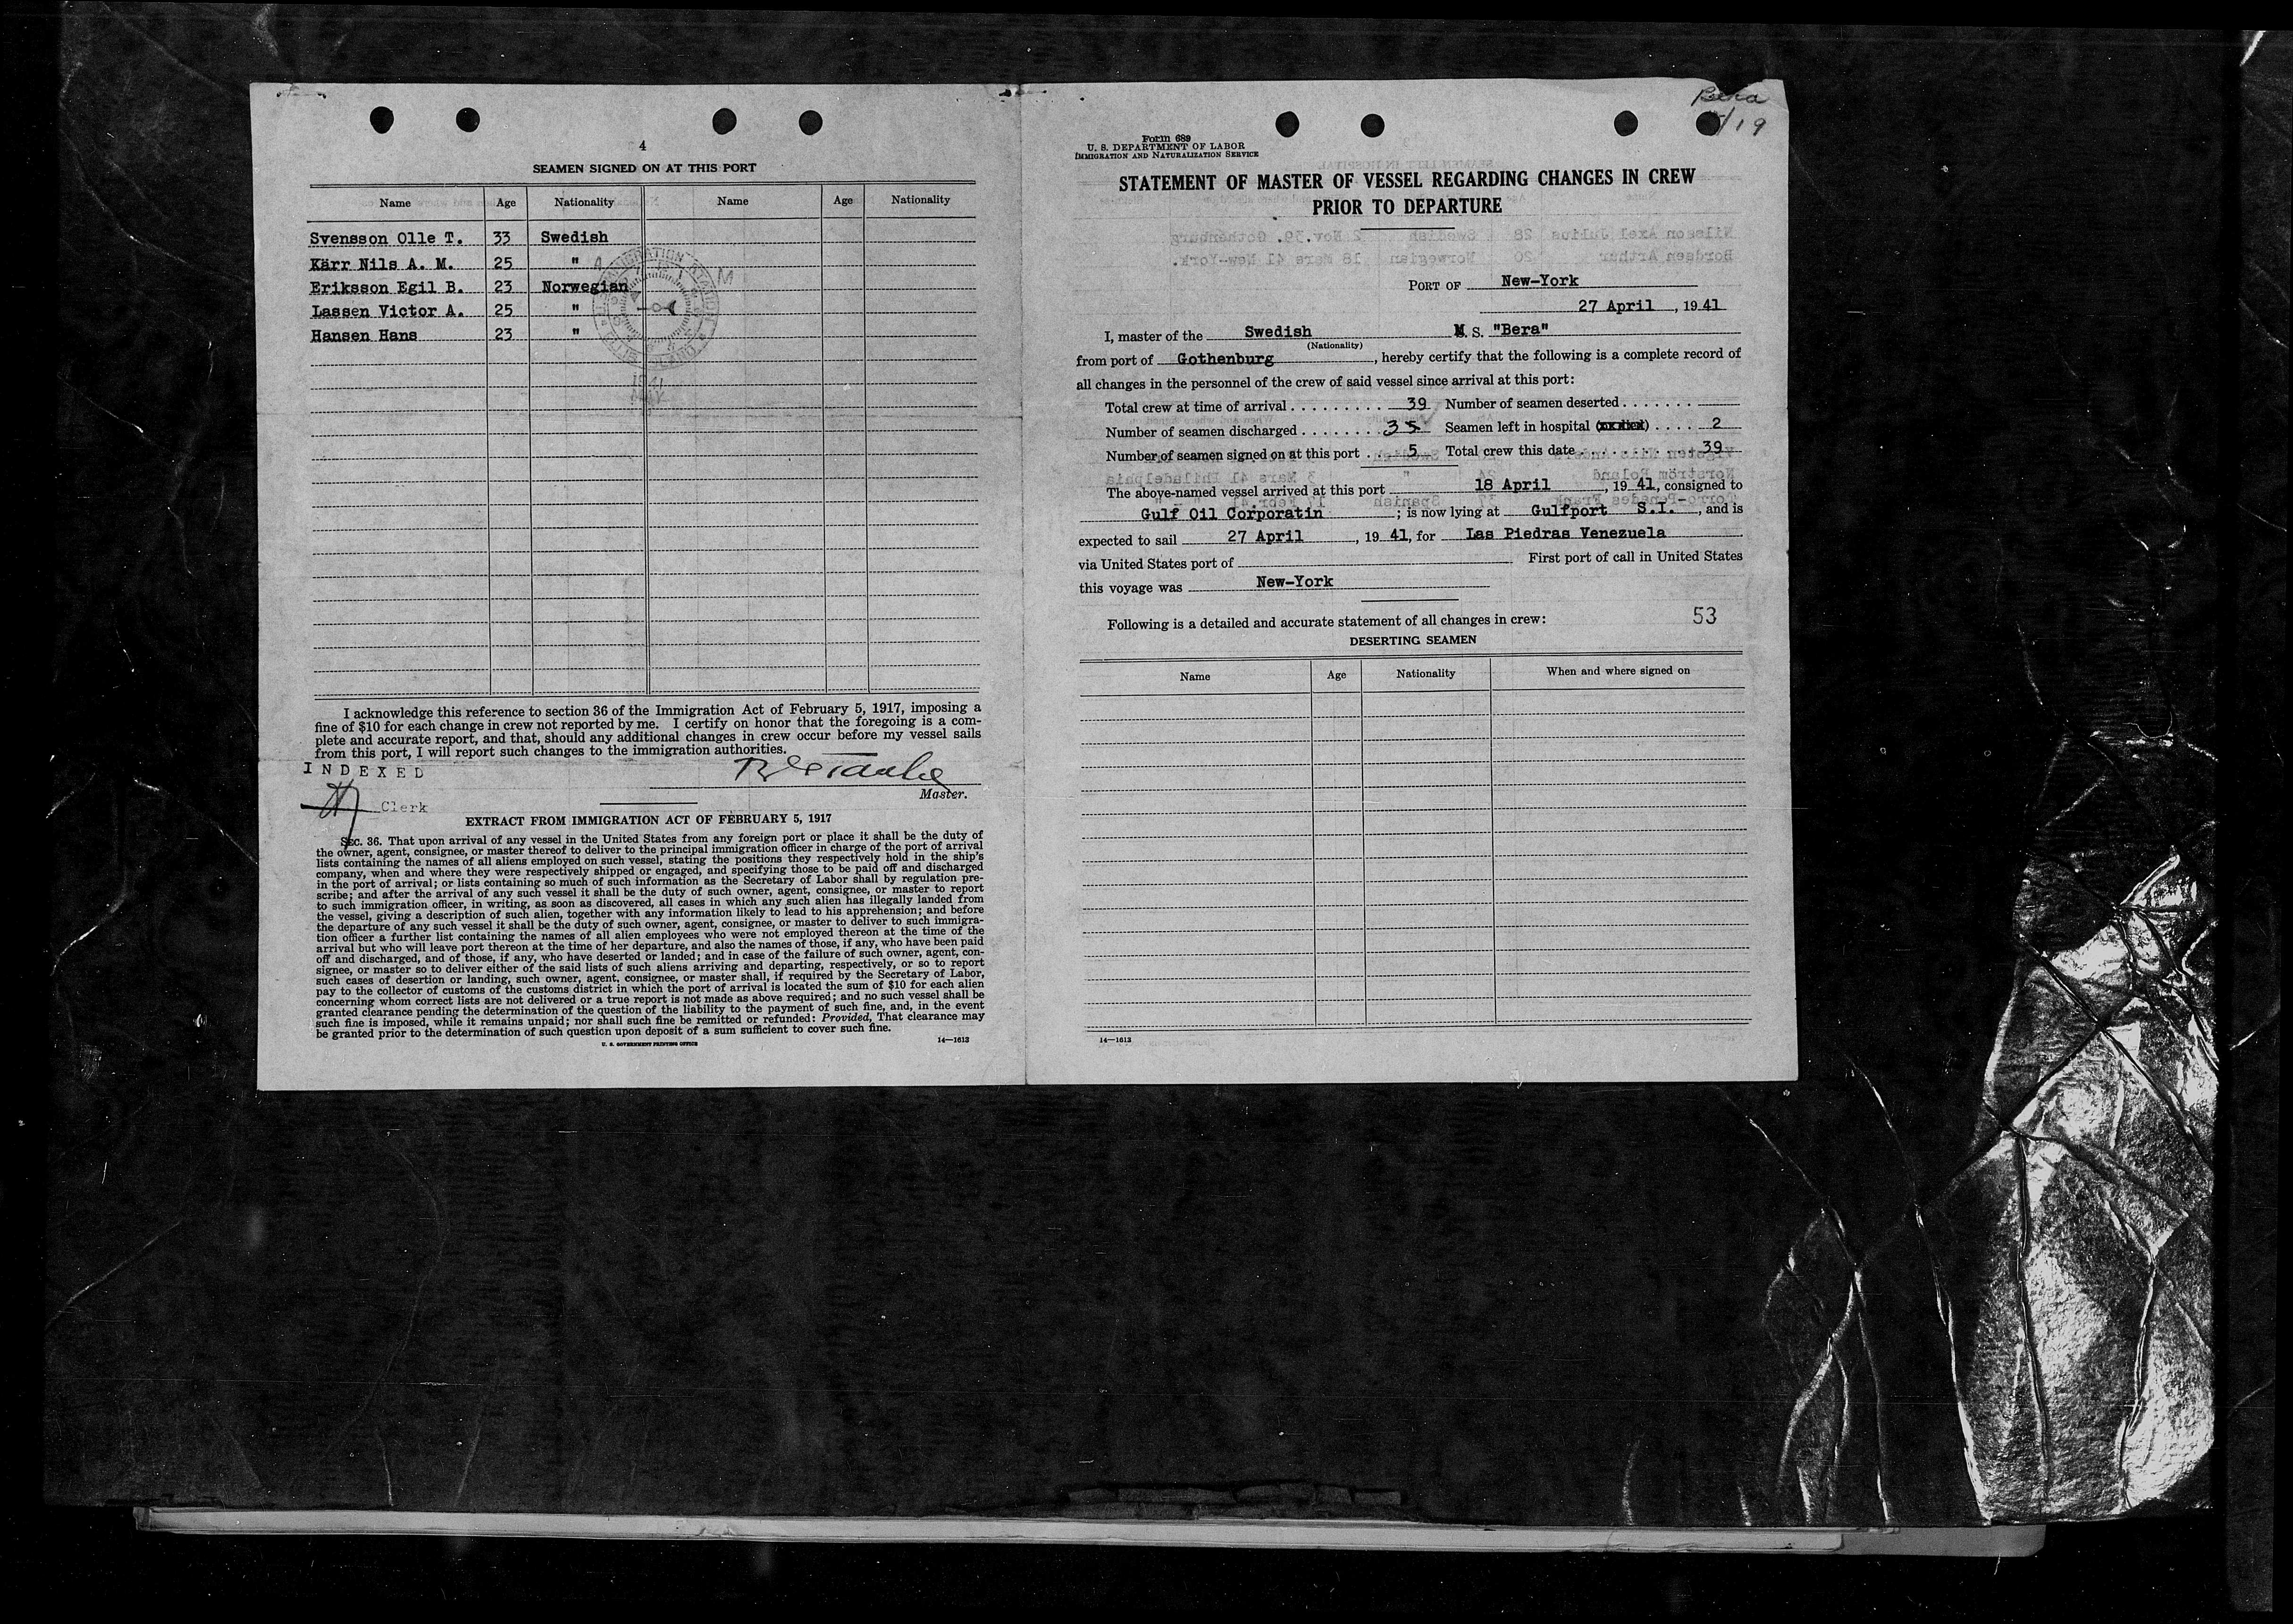 4
SEAMEN SIGNED ON AT THIS PORT
Name Age Nationality Name Age Nationality
Svensson Olle T. 33 Swedish
Kärr Nils A. M. 25 "
Eriksson Egil B. 23 Norwegian
Lassen Victor A. 25 "
Hansen Hans 23 "
I acknowledge this reference to section 36 of the Immigration Act of February 5, 1917, imposing a
fine of $10 for each change in crew not reported by me. I certify on honor that the foregoing is a com-
plete and accurate report, and that, should any additional changes in crew occur before my vessel sails
from this port, I will report such changes to the immigration authorities.
INDEXED
Master.
Clerk
EXTRACT FROM IMMIGRATION ACT OF FEBRUARY 5, 1917
SEC. 36. That upon arrival of any vessel in the United States from any foreign port or place it shall be the duty of
the owner, agent, consignee, or master thereof to deliver to the principal immigration officer in charge of the port of arrival
lists containing the names of all aliens employed on such vessel, stating the positions they respectively hold in the ship's
company, when and where they were respectively shipped or engaged, and specifying those to be paid off and discharged
in the port of arrival; or lists containing so much of such information as the Secretary of Labor shall by regulation pre-
scribe; and after the arrival of any such vessel it shall be the duty of such owner, agent, consignee, or master to report
to such immigration officer, in writing, as soon as discovered, all cases in which any such alien has illegally landed from
the vessel, giving a description of such alien, together with any information likely to lead to his apprehension; and before
the departure of any such vessel it shall be the duty of such owner, agent, consignee, or master to deliver to such immigra-
tion officer a further list containing the names of all alien employees who were not employed thereon at the time of the
arrival but who will leave port thereon at the time of her departure, and also the names of those, if any, who have been paid
off and discharged, and of those, if any, who have deserted or landed; and in case of the failure of such owner, agent, con-
signee, or master so to deliver either of the said lists of such aliens arriving and departing, respectively, or so to report
such cases of desertion or landing, such owner, agent, consignee, or master shall, if required by the Secretary of Labor,
pay to the collector of customs of the customs district in which the port of arrival is located the sum of $10 for each alien
concerning whom correct lists are not delivered or a true report is not made as above required; and no such vessel shall be
granted clearance pending the determination of the question of the liability to the payment of such fine, and, in the event
such fine is imposed, while it remains unpaid; nor shall such fine be remitted or refunded: Provided, That clearance may
be granted prior to the determination of such question upon deposit of a sum sufficient to cover such fine.
U. S. GOVERNMENT PRINTING OFFICE 14—1613
Bera
/19
Form 689
U. S. DEPARTMENT OF LABOR
IMMIGRATION AND NATURALIZATION SERVICE
STATEMENT OF MASTER OF VESSEL REGARDING CHANGES IN CREW
PRIOR TO DEPARTURE
PORT OF New-York
27 April, 1941
I, master of the Swedish M. S. "Bera"
(Nationality)
from port of Gothenburg, hereby certify that the following is a complete record of
all changes in the personnel of the crew of said vessel since arrival at this port:
Total crew at time of arrival 39 Number of seamen deserted
Number of seamen discharged 3 Seamen left in hospital 2
Number of seamen signed on at this port 5 Total crew this date 39
The above-named vessel arrived at this port 18 April, 1941, consigned to
Gulf Oil Corporatin; is now lying at Gulfport S.I., and is
expected to sail 27 April, 1941, for Las Piedras Venezuela
via United States port of First port of call in United States
this voyage was New-York
Following is a detailed and accurate statement of all changes in crew: 53
DESERTING SEAMEN
Name Age Nationality When and where signed on
14—1613